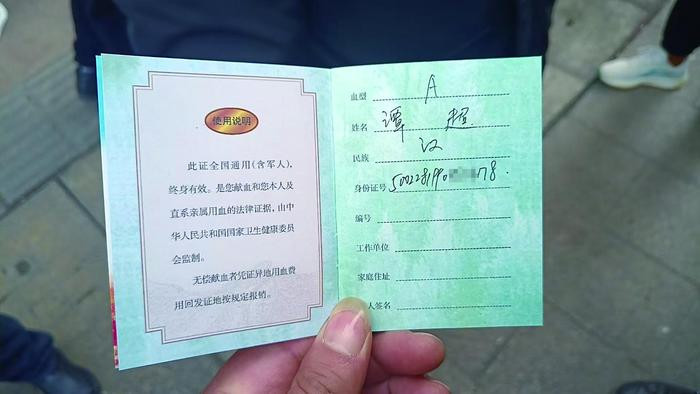 使用说明
此证全国通用(含军人),
终身有效。是您献血和您本人及
直系亲属用血的法律证据,由中
华人民共和国国家卫生健康委员
会监制。
无偿献血者凭证异地用血费
用回发证地按规定报销。
血型 A
姓名 谭超
民族 汉
身份证号 500228199 78.
编号
工作单位
家庭住址
人签名